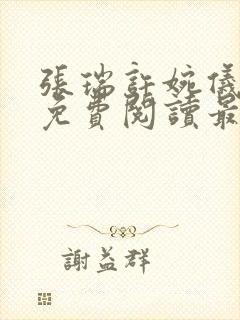 張瑞許婉儀
免費閱讀最
謝益群